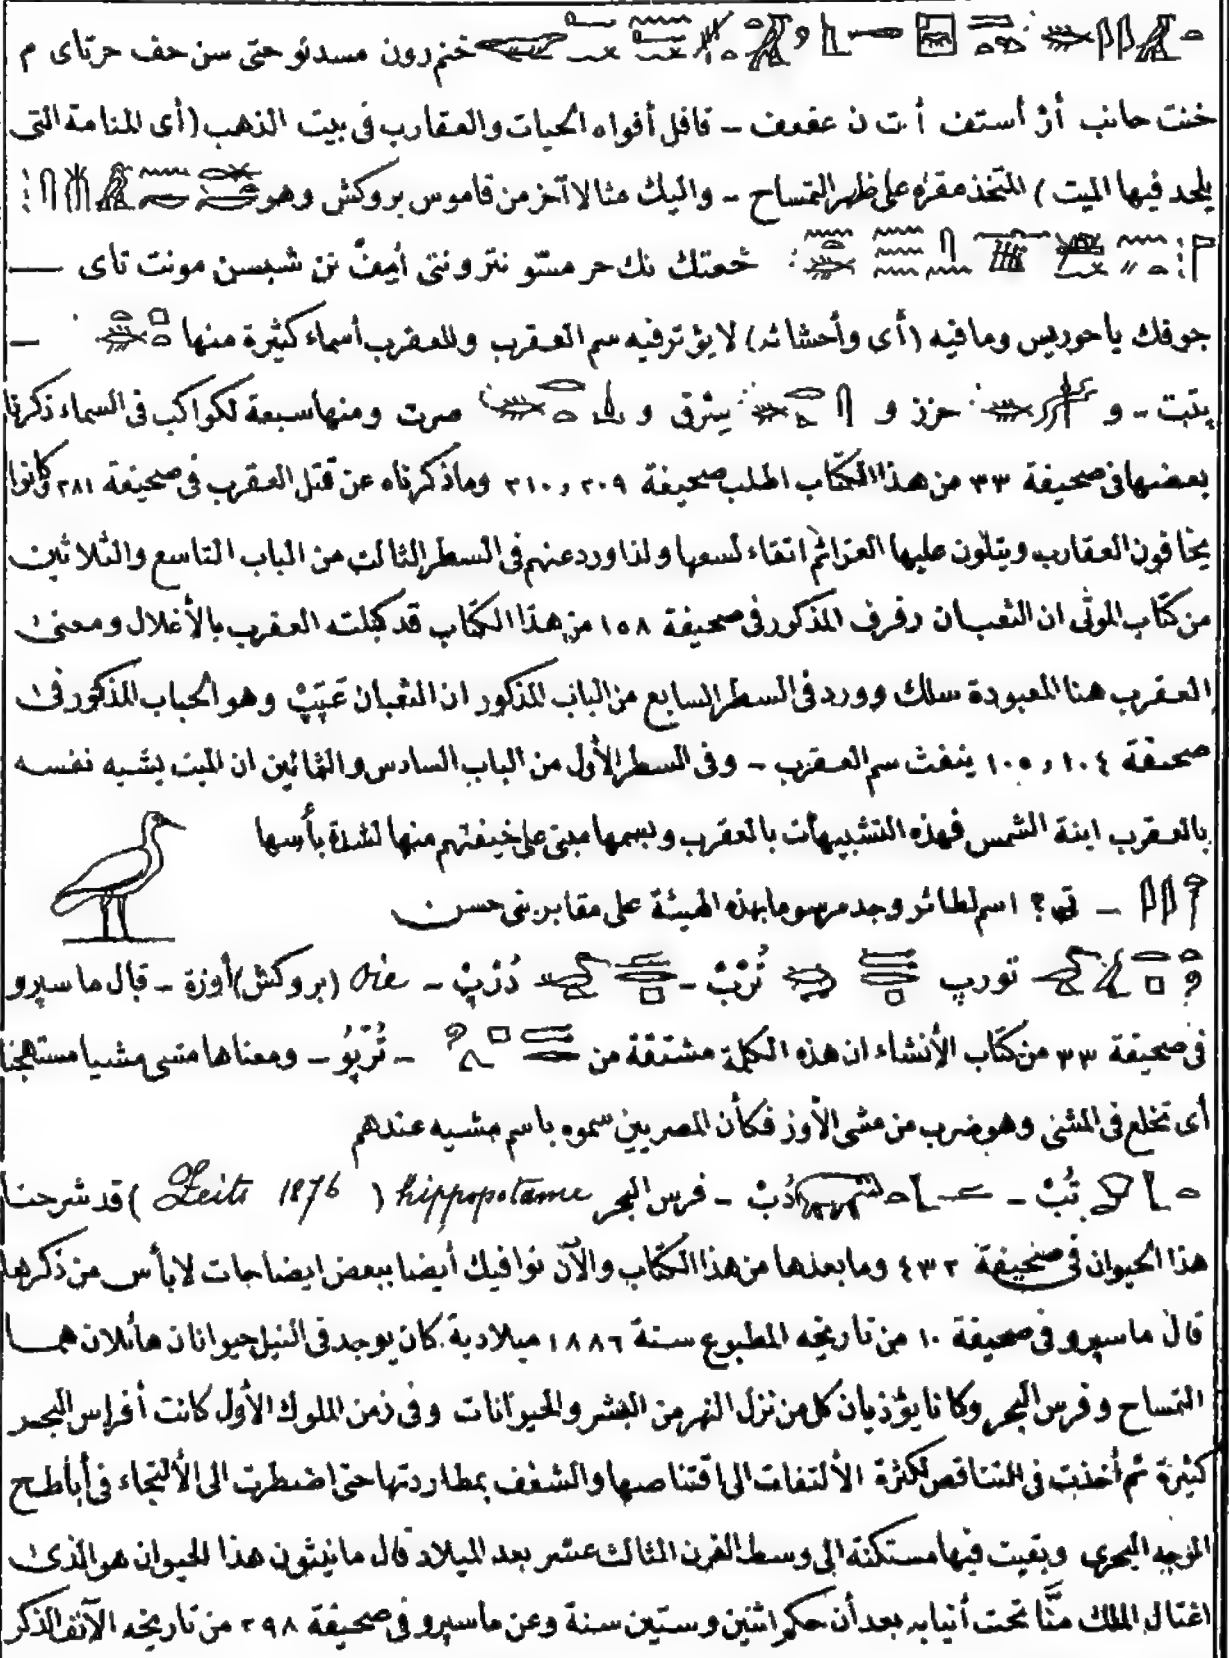 خنم رون مسدنو حتى سن حف حرتاى م
خنت حانب أز أستف أ.ت ن عقعف - قافل أفواه الحيات والعقارب فى بيت الذهب (أى المنامة التى
يلحد فيها الميت) المتخذ مقره على ظهر التمساح - واليك مثالا آخر من قاموس بروكش وهو
نك حر مستو نترو نتى أيمف نن شبسن مونت تاى —
جوفك يا حوريس وما فيه (أى وأحشائه) لا يؤثر فيه سم العقرب وللعقرب أسماء كثيرة منها —
پتپت - و حزز و سرق و صرت ومنها سبعة لكواكب فى السماء ذكرنا
بعضها فى صحيفة ٣٣ من هذا الكتاب اطلب صحيفة ٢٠٩ و ٢١٠ وما ذكرناه عن قتل العقرب فى صحيفة ٢٨١ وكانوا
يخافون العقارب ويتلون عليها العزائم اتقاء لسعها ولذا ورد عنهم فى السطر الثالث من الباب التاسع والثلاثين
من كتاب الموتى ان الثعبان رفرف المذكور فى صحيفة ١٥٨ من هذا الكتاب قد كبلته العقرب بالأغلال ومعنى
العقرب هنا المعبودة سلك وورد فى السطر السابع من الباب المذكور ان الثعبان عَپَپْ وهو الحباب المذكور فى
صحيفة ١٠٤ و ١٠٥ ينفث سم العقرب - وفى السطر الأول من الباب السادس والثمانين ان الميت يشبه نفسه
بالعقرب ابنة الشمس فهذه التشبيهات بالعقرب وبسمها مبنى على خيفتهم منها لشدة بأسها
- تى؟ اسم لطائر وجد مرسوما بهذه الهيئة على مقابر بنى حسن
تورپ تُرَّپْ - دُرْپْ - Oie (بروكش) أوزة - قال ماسپرو
فى صحيفة ٣٣ من كتاب الأنشاء ان هذه الكلمة مشتقة من - تُرّپُو - ومعناها مشى مشيا مستهجنا
أى تخلع فى المشى وهو ضرب من مشى الأوز فكأن المصريين سموه باسم مشيه عندهم
تُبْ - دُبْ - فرس البحر hippopotame ( Zeits 1876 ) قد شرحنا
هذا الحيوان فى صحيفة ٤٣٢ وما بعدها من هذا الكتاب والآن نوافيك أيضا ببعض ايضاحات لا بأس من ذكرها
قال ماسپرو فى صحيفة ١٠ من تاريخه المطبوع سنة ١٨٨٦ ميلادية كان يوجد فى النيل حيوانان هائلان هما
التمساح وفرس البحر وكانا يؤذيان كل من نزل النهر من البشر والحيوانات وفى زمن الملوك الأول كانت أفراس البحر
كثيرة ثم أخذت فى التناقص لكثرة الألتفات الى اقتناصها والشغف بمطاردتها حتى اضطرت الى الألتجاء فى أباطح
الوجه البحرى وبقيت فيها مستكنة الى وسط القرن الثالث عشر بعد الميلاد قال مانيثون هذا الحيوان هو الذى
اغتال الملك منَّا تحت أنيابه بعد أن حكم اثنين وستين سنة وعن ماسپرو فى صحيفة ٢٩٨ من تاريخه الآنف الذكر